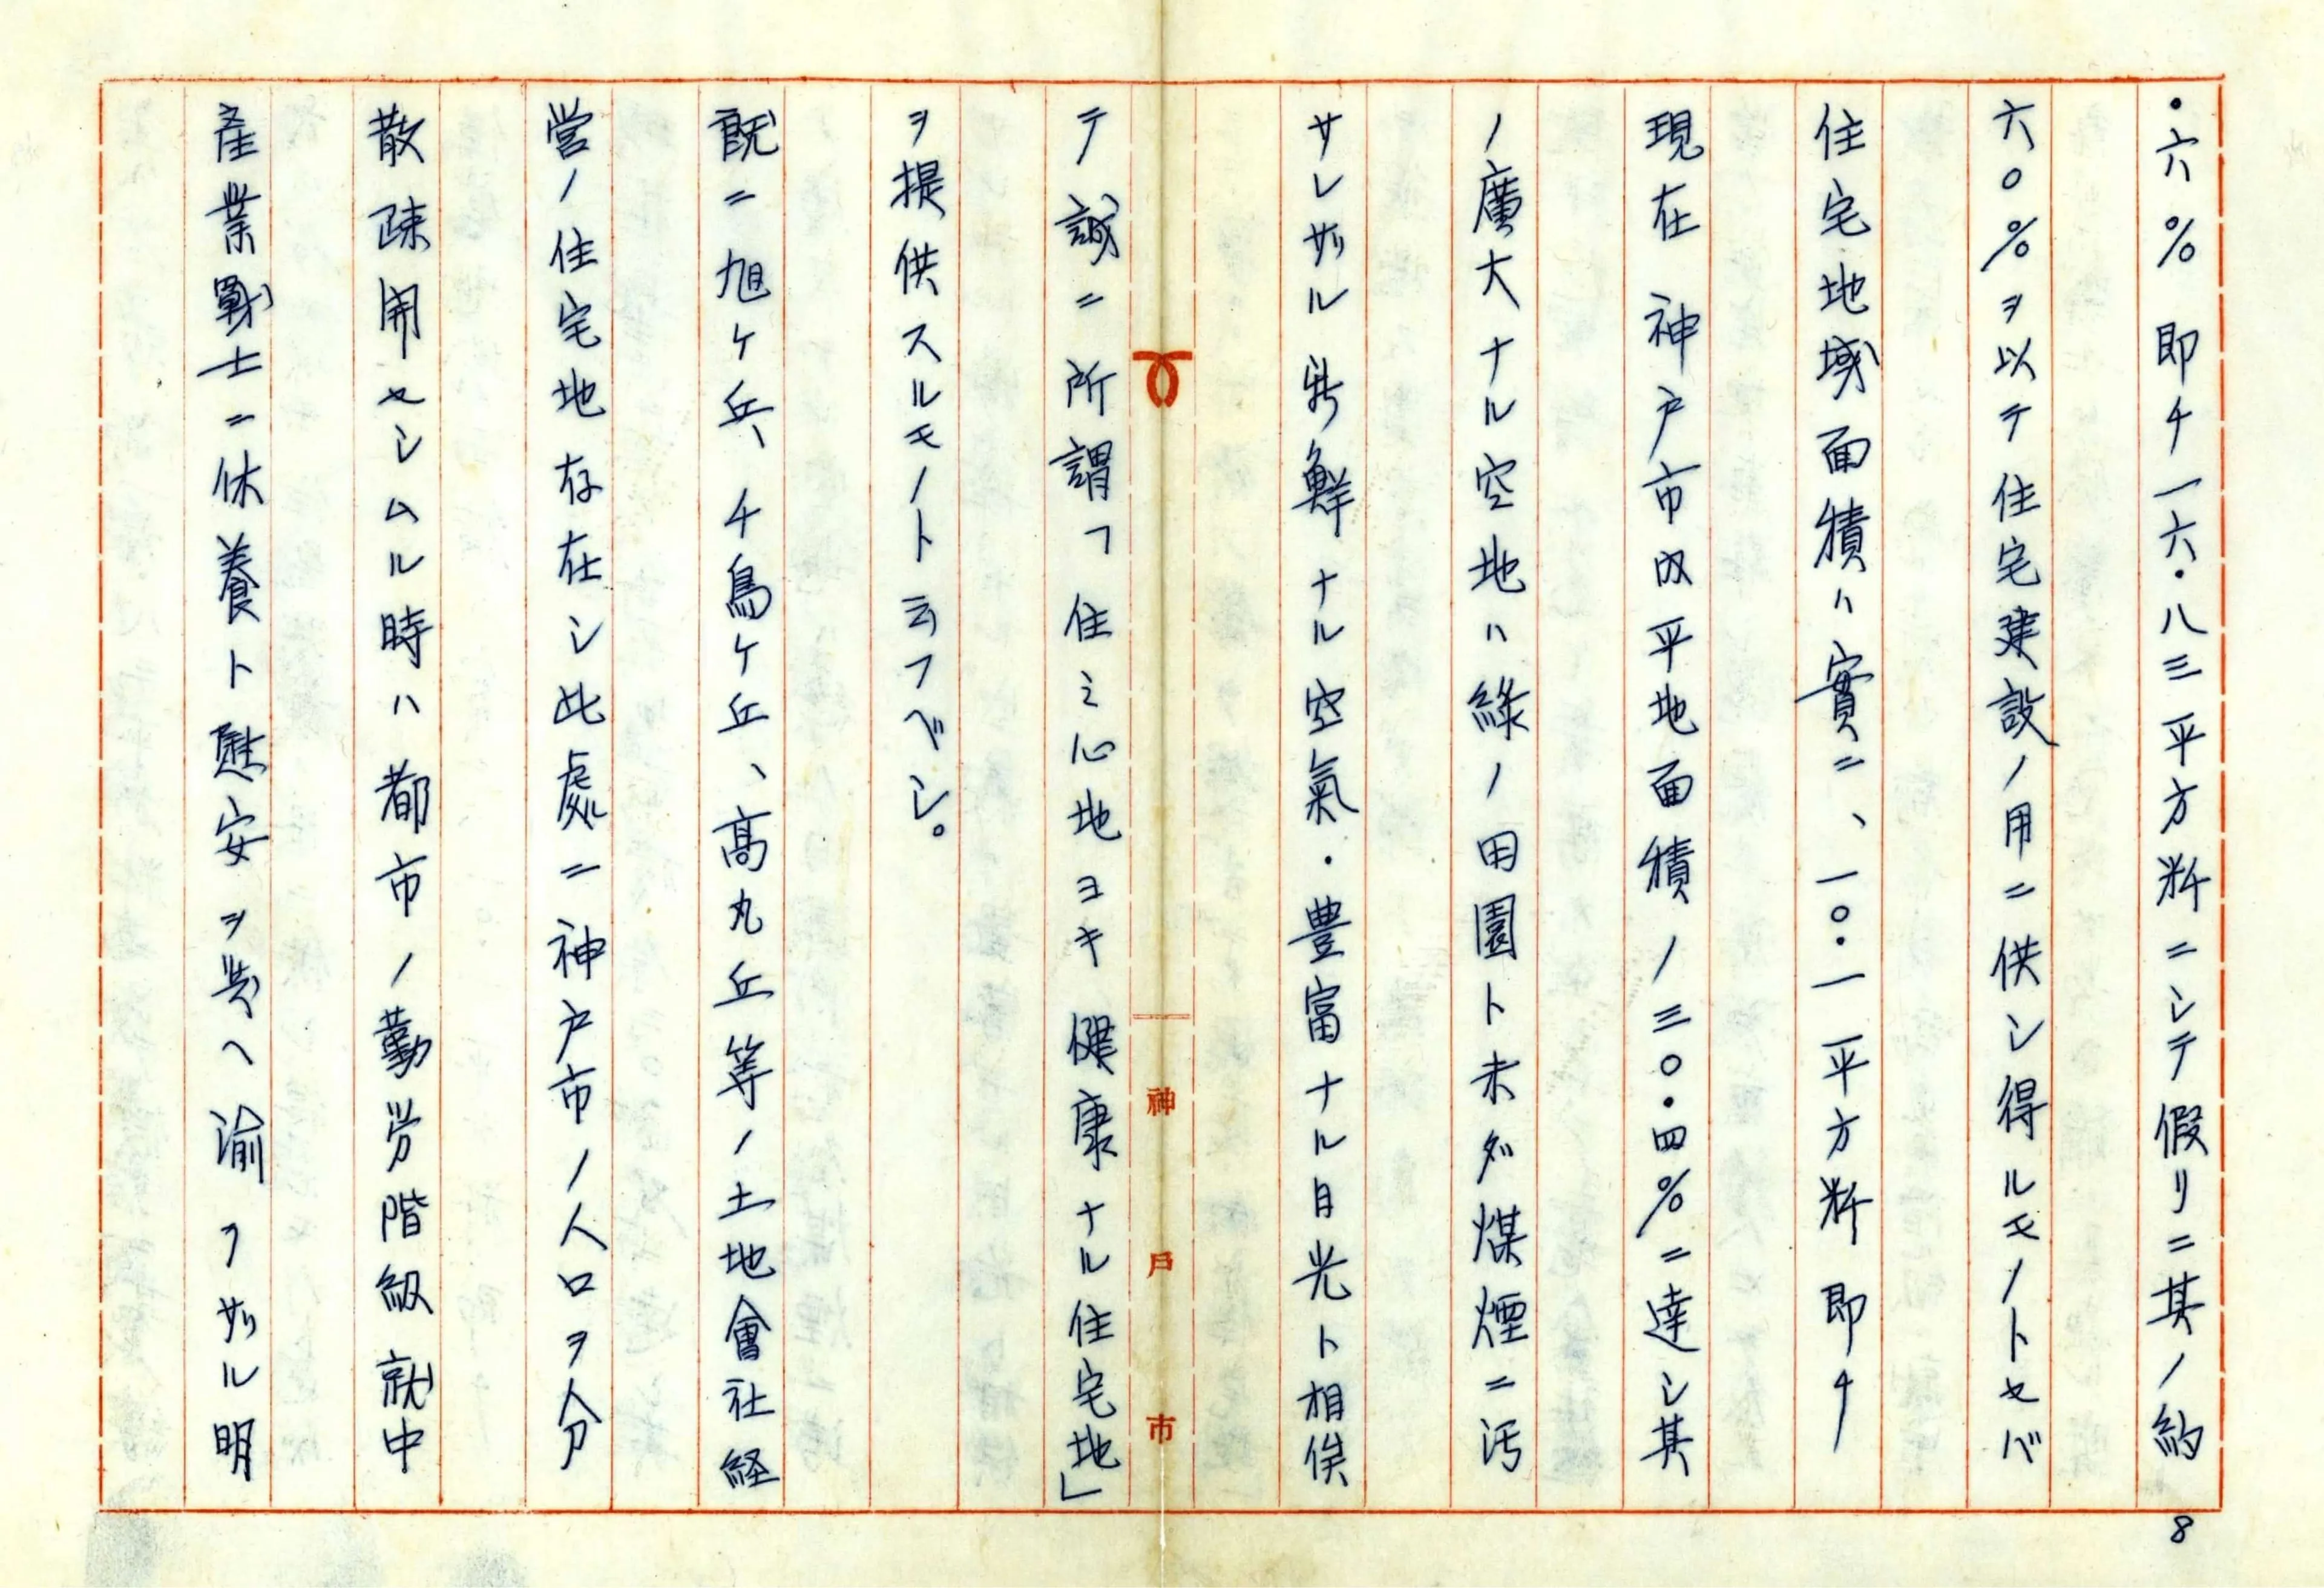 ・六%即チ一六・八三平方粁ニシテ假リニ其ノ約
六〇%ヲ以テ住宅建設ノ用ニ供シ得ルモノトセバ
住宅地域面積ハ實ニ、一〇・一平方粁即チ
現在神戸市内平地面積ノ三〇・四%ニ達シ其
ノ廣大ナル空地ハ綠ノ田園ト未ダ煤煙ニ汚
サレザル新鮮ナル空氣・豊富ナル日光ト相俟
テ誠ニ所謂「住ミ心地ヨキ健康ナル住宅地」
ヲ提供スルモノト云フベシ。
既ニ旭ケ丘、千鳥ケ丘、高丸丘等ノ土地會社経
営ノ住宅地存在シ此處ニ神戸市ノ人口ヲ分
散疎開セシムル時ハ都市ノ勤労階級就中
産業戰士ニ休養ト慰安ヲ与ヘ渝ラザル明
神戸市
8